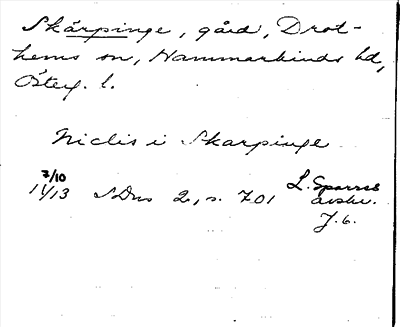 Skärpinge, gård, Drot-
hems sn, Hammarkinds hd,
Österg. l.
Niclis i Skarpinge
7/10
1413 SDns 2, s. 701 L. Sparres
avskr.
J. G.